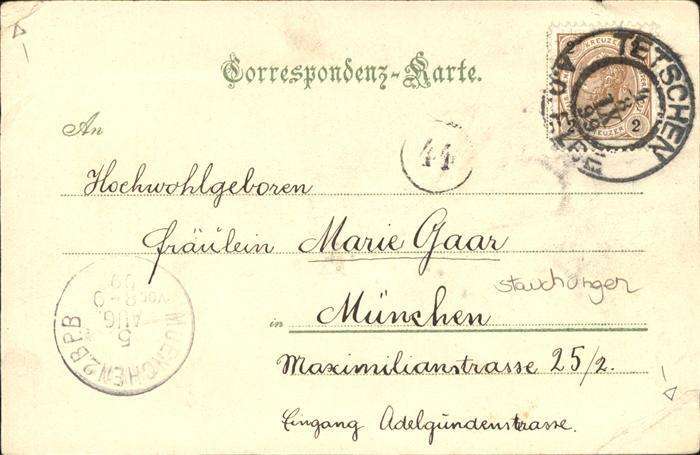 Correspondenz-Karte.
TETSCHEN
2
KREUZER
An
44
Hochwohlgeboren
Fräulein Marie Gaar
stauchungen
in München
Maximilianstrasse 25/2.
Eingang Adelgundenstrasse.
MUENCHEN 2 B.P.B
5
AUG.
99